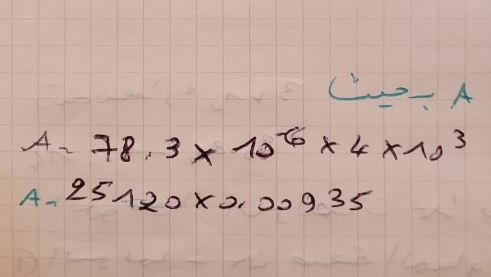 A بحيث
A = 78.3 × 10⁻⁶ × 4 × 10³
A = 25120 × 0.00935